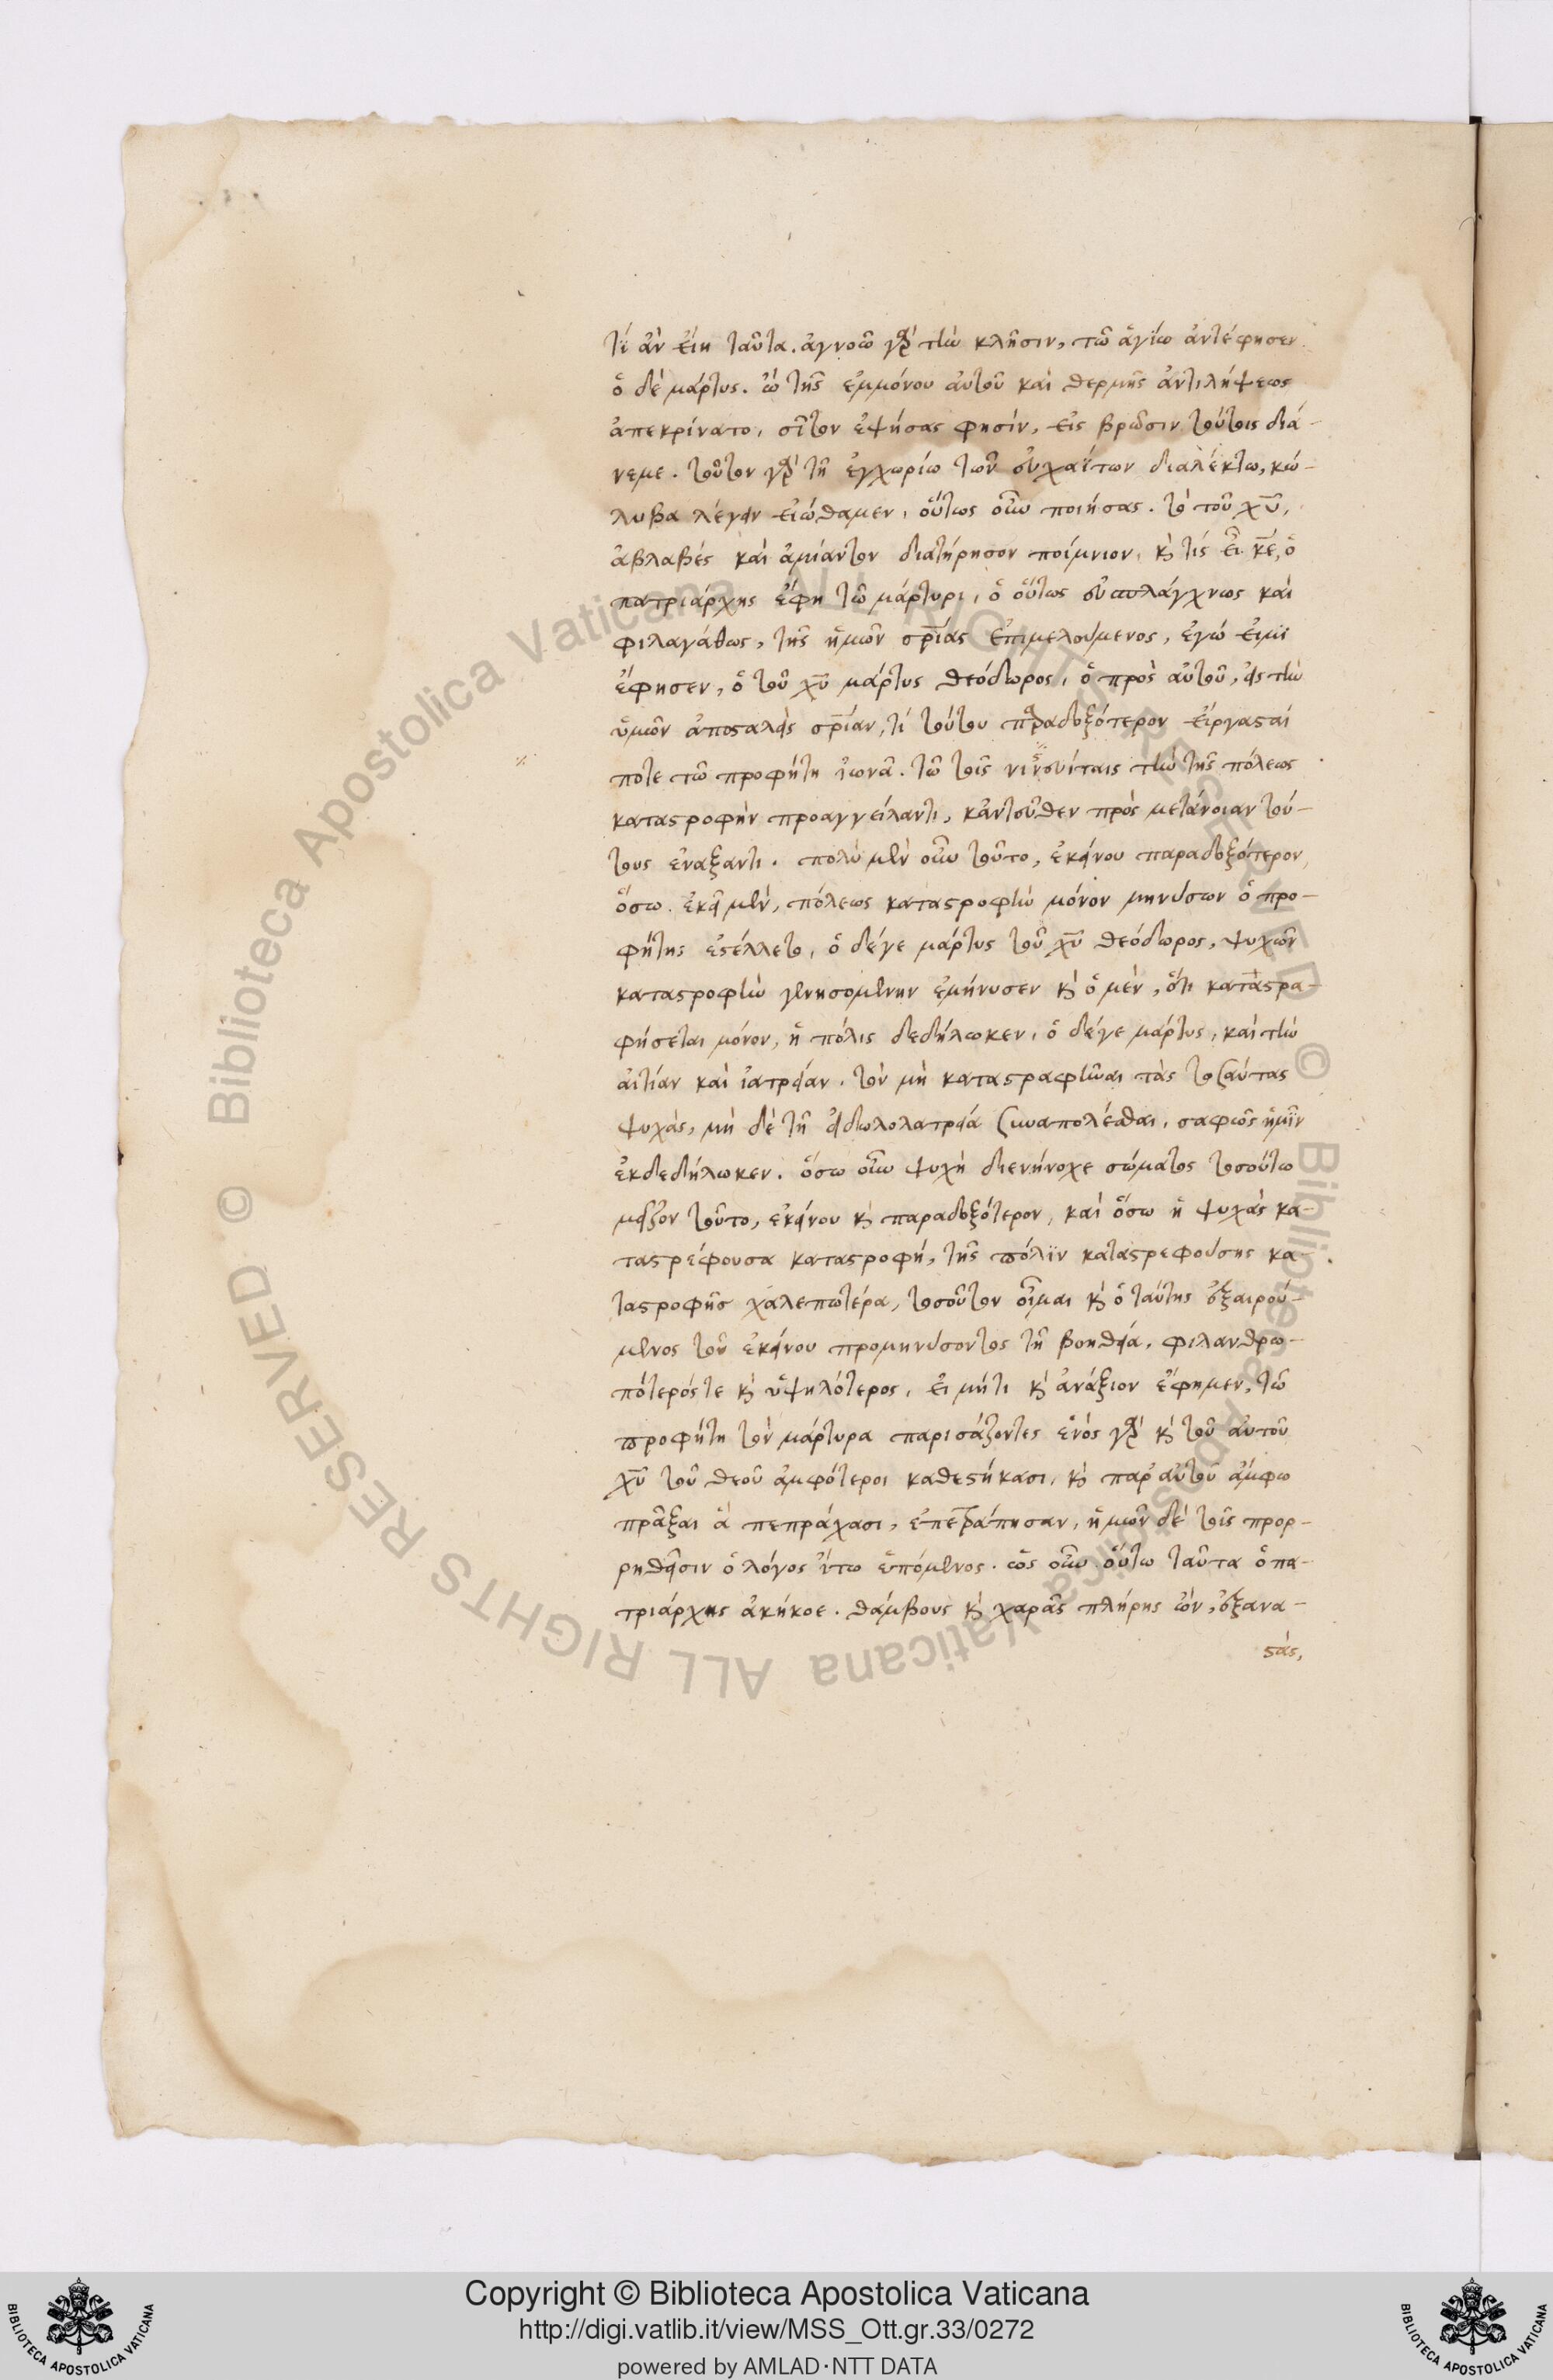 τί ἂν εἴη ταῦτα. ἀγνοῶ γὰρ τὴν κλῆσιν, τῶ ἁγίω ἀντέφησεν.
ὁ δὲ μάρτυς. ὢ τῆς ἐμμόνου αὐτοῦ καὶ θερμῆς ἀντιλήψεως
ἀπεκρίνατο, σῖτον ἑψήσας φησίν, εἰς βρῶσιν τούτοις διά-
νεμε. τοῦτον γὰρ τῆ ἐγχωρίω τῶν εὐχαΐτων διαλέκτω, κώ-
λυβα λέγειν εἰώθαμεν, οὕτως οὖν ποιήσας. τὸ τοῦ χυ,
ἀβλαβές καὶ ἀμίαντον διατήρησον ποίμνιον, κὶ τίς εἶ κε, ὁ
πατριάρχης ἔφη τῶ μάρτυρι, ὁ οὕτως εὐσπλάγχνως καὶ
φιλαγάθως, τῆς ἡμῶν σρίας ἐπιμελούμενος, ἐγώ εἰμι
ἔφησεν, ὁ τοῦ χυ μάρτυς θεόδωρος, ὁ πρὸς αὐτοῦ, εἰς τὴν
ὑμῶν ἀποσταλεὶς σρίαν, τί τούτου παραδοξότερον εἴργασταί
ποτε τῶ προφήτη ἰωνᾶ. τῶ τοῖς νινευίταις τὴν τῆς πόλεως
καταστροφὴν προαγγείλαντι, κἀντεῦθεν πρὸς μετάνοιαν τού-
τους ἐνάξαντι. πολὺ μὲν οὖν τοῦτο, ἐκείνου παραδοξότερον,
ὅσω. ἐκεῖ μὲν, πόλεως καταστροφὴν μόνον μηνύσων ὁ προ-
φήτης ἐστέλλετο, ὁ δέγε μάρτυς τοῦ χυ θεόδωρος, ψυχῶν
καταστροφὴν γενησομένην ἐμήνυσεν κὶ ὁ μὲν, ὅτι καταστρα-
φήσεται μόνον, ἡ πόλις δεδήλωκεν, ὁ δέγε μάρτυς, καὶ τὴν
αἰτίαν καὶ ἰατρείαν. τοῦ μὴ καταστραφῆναι τὰς τοσαύτας
ψυχὰς, μὴ δὲ τῆ εἰδωλολατρεία συναπολέσθαι, σαφῶς ἡμῖν
ἐκδεδήλωκεν. ὅσω οὖν ψυχὴ διενήνοχε σώματος τοσούτω
μεῖζον τοῦτο, ἐκείνου κὶ παραδοξότερον, καὶ ὅσω ἡ ψυχὰς κα-
ταστρέφουσα καταστροφή, τῆς πόλιν καταστρεφούσης κα-
ταστροφῆς χαλεπωτέρα, τοσοῦτον οἶμαι κὶ ὁ ταύτης ἐξαιρού-
μενος τοῦ ἐκείνου προμηνύσοντος τῆ βοηθεία. φιλανθρω-
πότερόςτε κὶ ὑψηλότερος, εἰ μήτι κὶ ἀνάξιον ἔφημεν, τῶ
προφήτη τὸν μάρτυρα παρισάζοντες ἑνὸς γὰρ κὶ τοῦ αὐτοῦ
χυ τοῦ θεοῦ ἀμφότεροι καθεστήκασι, κὶ παρ' αὐτοῦ ἄμφω
πρᾶξαι ἃ πεπράχασι, ἐπετράπησαν, ἡμῶν δὲ τοῖς προρ-
ρηθεῖσιν ὁ λόγος ἴτω ἑπόμενος. ὡς οὖν οὕτω ταῦτα ὁ πα-
τριάρχης ἀκήκοε. θάμβους κὶ χαρᾶς πλήρης ὢν, ἐξανα-
στάς,
Copyright © Biblioteca Apostolica Vaticana
http://digi.vatlib.it/view/MSS_Ott.gr.33/0272
powered by AMLAD·NTT DATA